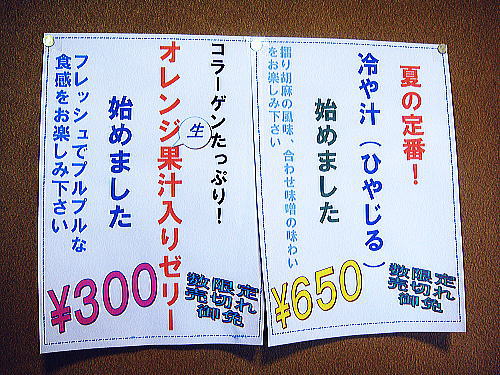 夏の定番！
冷や汁（ひやじる）
始めました
擂り胡麻の風味、合わせ味噌の味わい
をお楽しみ下さい
¥650
数限定
売切れ
御免
コラーゲンたっぷり！
オレンジ果汁入りゼリー
生
始めました
フレッシュでプルプルな
食感をお楽しみ下さい
¥300
数限定
売切れ
御免